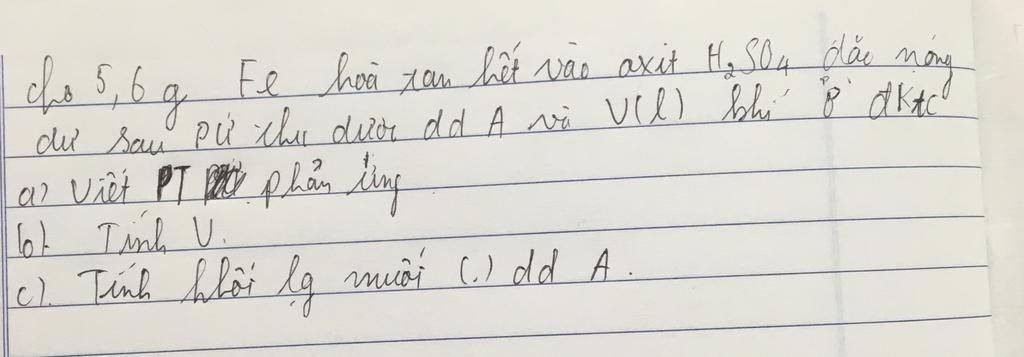 cho 5,6 g Fe hoà tan hết vào axit H₂SO₄ đặc nóng
dư sau PƯ thu được dd A và V(l) khí ở đktc
a) Viết PT phản ứng
b) Tính V.
c). Tính khối lg muối (.) dd A.